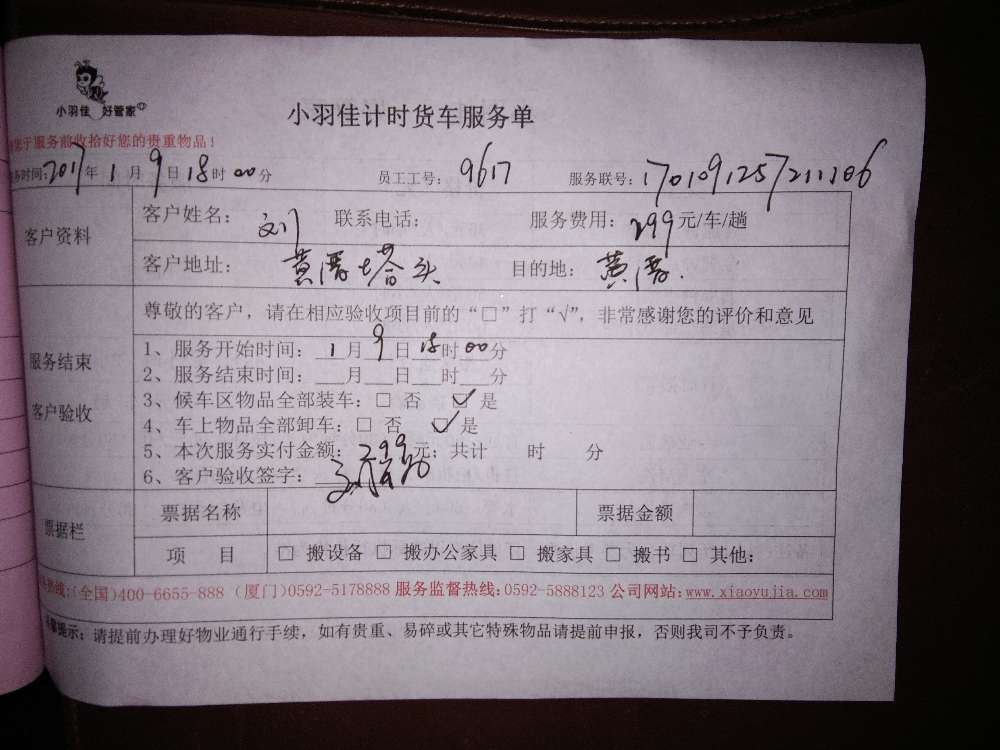 小羽佳 好管家
小羽佳计时货车服务单
于服务前收拾好您的贵重物品！
务时间:2017年1月9日18时00分 员工工号: 9617 服务联号: 1701091257211106
客户资料
客户姓名: 刘 联系电话: 服务费用: 299元/车/趟
客户地址: 黄厝塔头 目的地: 黄厝.
尊敬的客户，请在相应验收项目前的“□”打“√”，非常感谢您的评价和意见
服务结束
客户验收
1、服务开始时间: 1月9日18时00分
2、服务结束时间: ___月___日___时___分
3、候车区物品全部装车: □ 否 ☑ 是
4、车上物品全部卸车: □ 否 ☑ 是
5、本次服务实付金额: 299元; 共计 时 分
6、客户验收签字:
票据栏
票据名称 票据金额
项 目 □ 搬设备 □ 搬办公家具 □ 搬家具 □ 搬书 □ 其他:
热线:(全国)400-6655-888 (厦门)0592-5178888 服务监督热线:0592-5888123 公司网站:www.xiaoyujia.com
提示: 请提前办理好物业通行手续，如有贵重、易碎或其它特殊物品请提前申报，否则我司不予负责。